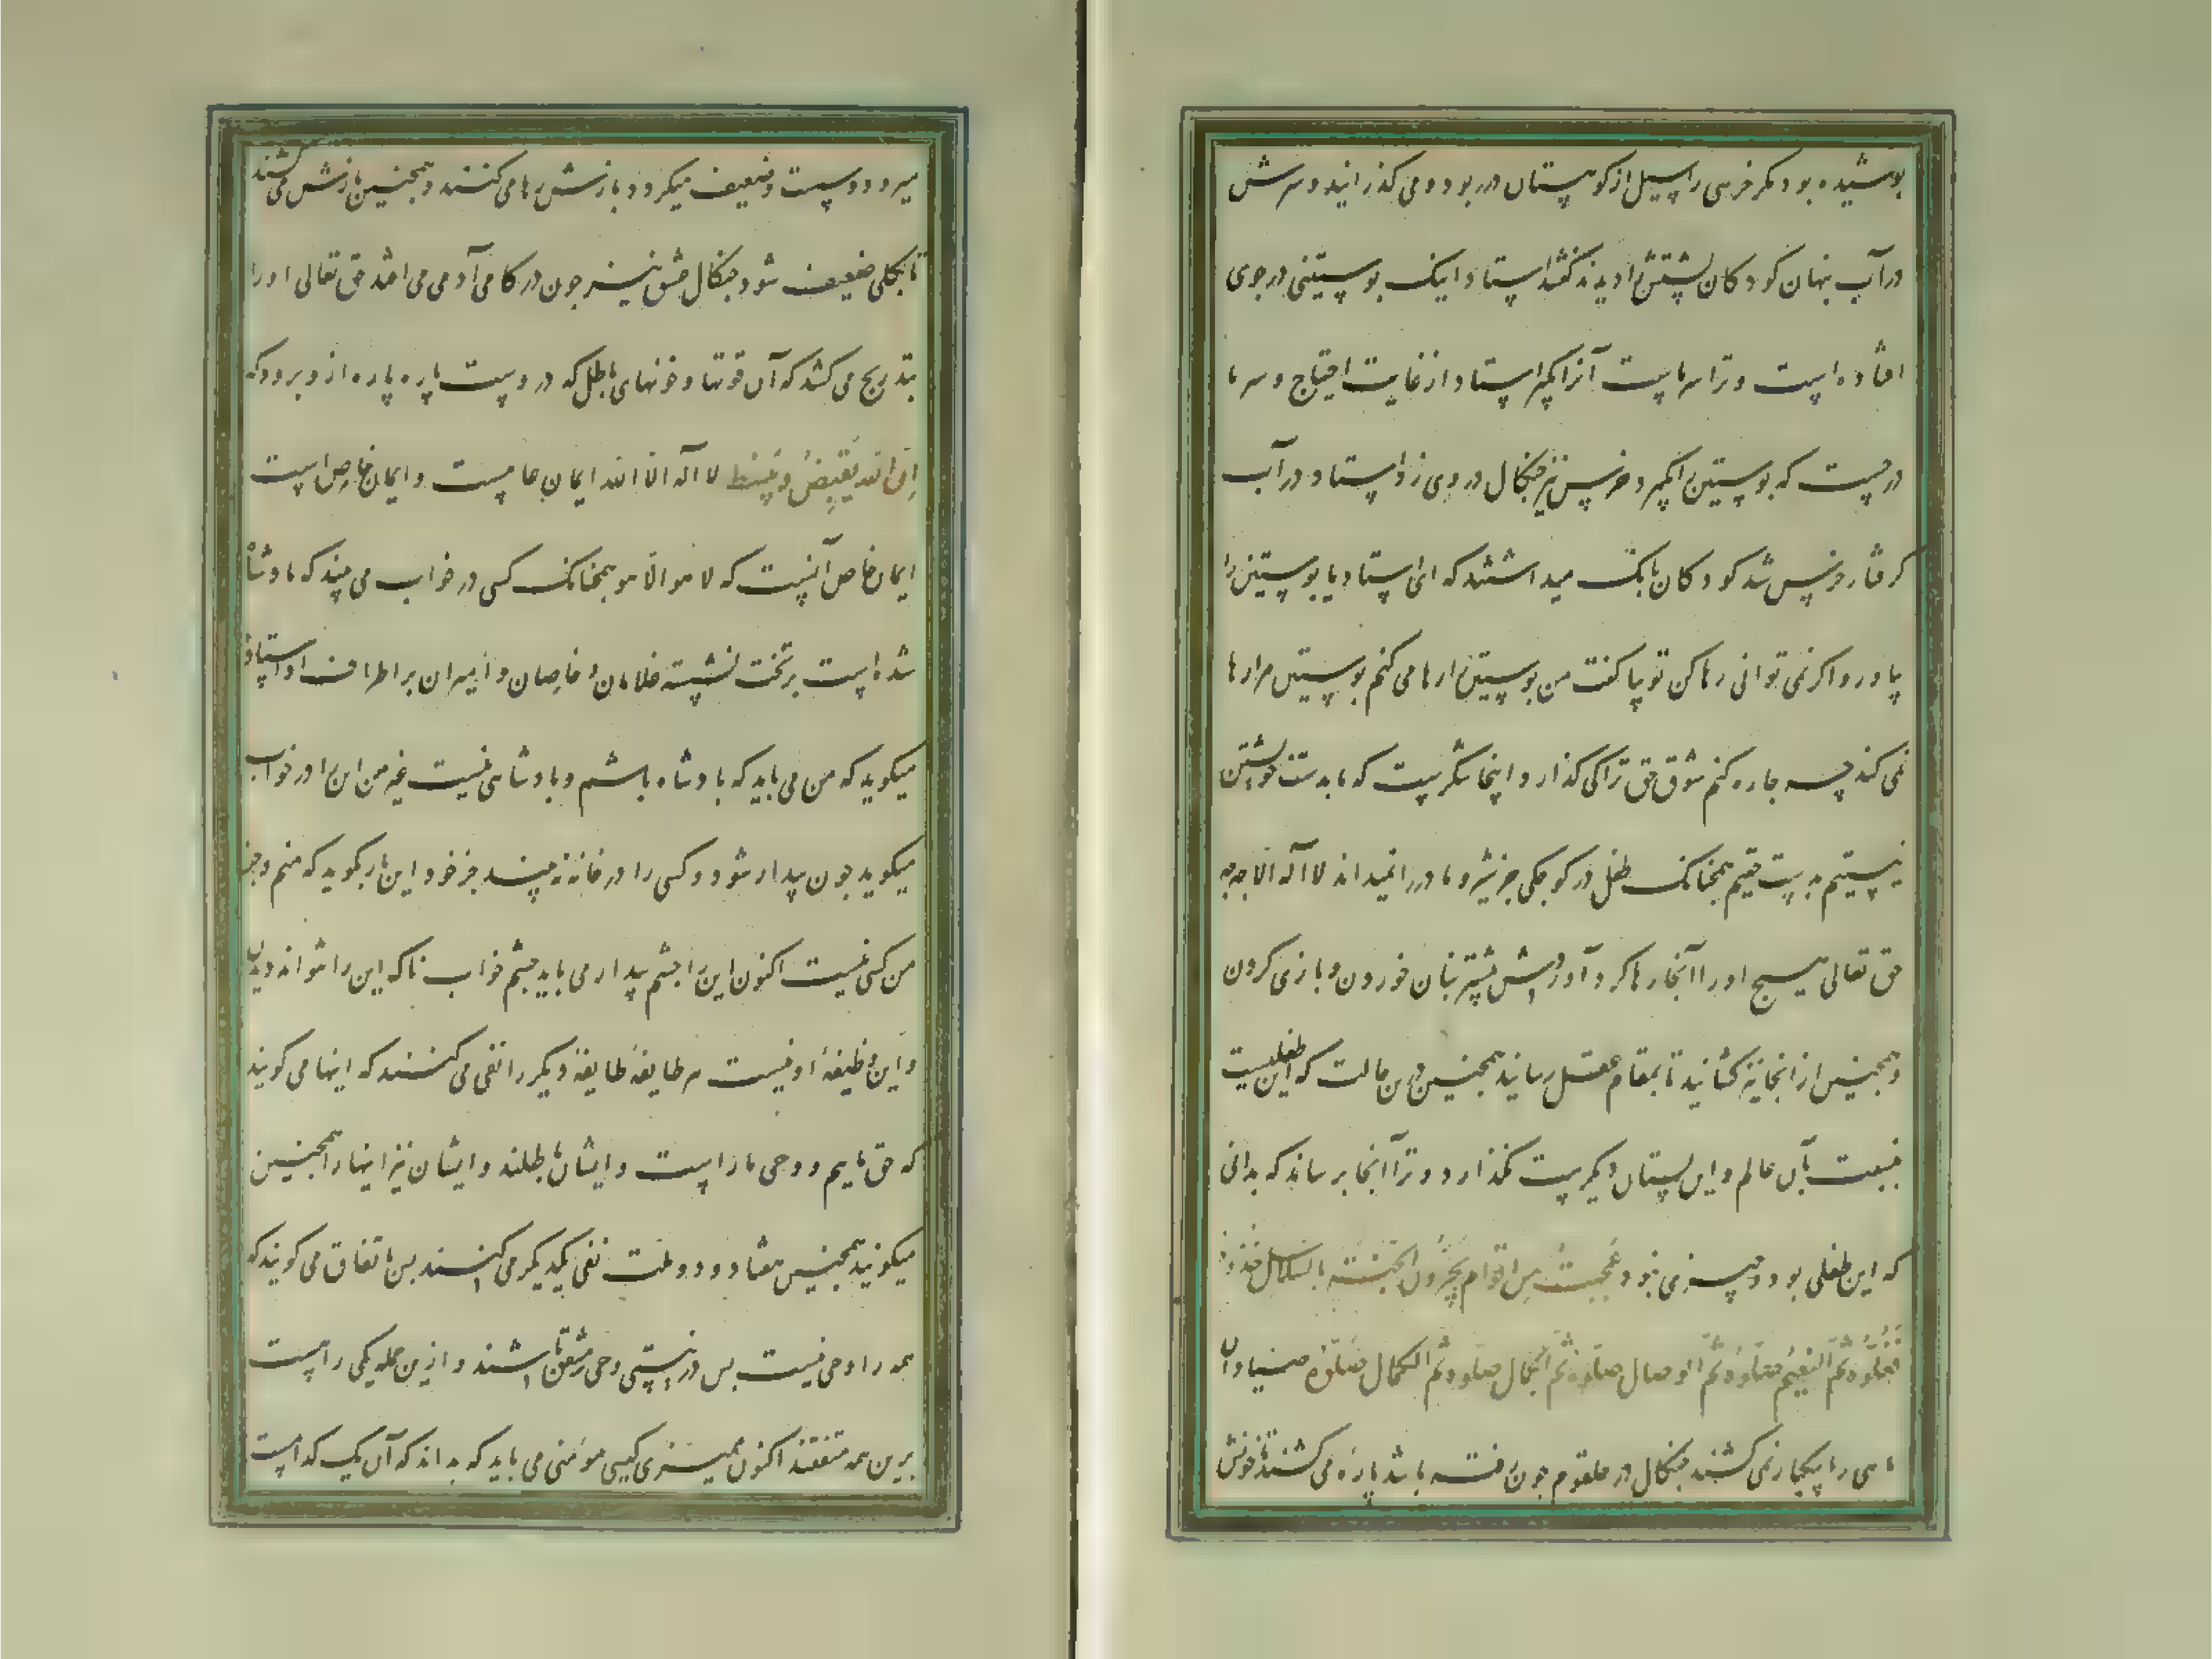 پوشیده بود مکر خرسی را سیل از کوهستان در ربوده می کذرانید و سرش
در آب پنهان کودکان پشتش را دیدند کفتند استاد اینک پوستینی در جوی
افتاده است و ترا سرماست آنرا بکیر استاد از غایت احتیاج و سرما
در جست که پوستین را بکیرد خرس تیز چنکال در وی زد استاد در آب
کرفتار خرس شد کودکان بانک میداشتند که ای استاد یا پوستین را
بیاور و اکر نمی توانی رها کن تو بیا کفت من پوستین را رها می کنم پوستین مرا رها
نمی کند چه چاره کنم شوق حق ترا کی کذارد اینجا شکرست که ما بدست خویشتن
نیستیم بدست حقیم همچنانک طفل در کوچکی جز شیر و مادر را نمیداند
حق تعالی هیچ او را آنجا رها کرد پیشتر آوردش بنان خوردن و بازی کردن
و همچنین از آنجاش کشانید تا بمقام عقل رسانید همچنین درین حالت که این طفلیست
بنسبت بآن عالم و این پستان دیکرست نکذارد و ترا آنجا برساند که بدانی
که این طفلی بود و چیزی نبود عجبت من اقوام یجرون الی الجنة بالسلاسل خذوه
فغلوه ثم النعیم صلوه ثم الوصال صلوه ثم الجمال صلوه ثم الکمال صلوه صیادان
ماهی را یکبار نمی کشند چنکال در حلقوم چون رفته باشد پاره می کشند تا خونش
میرود و سست و ضعیف میکردد بازش رها می کنند و همچنین بازش می کشند
تا بکلی ضعیف شود چنکال عشق نیز چون در کام آدمی می افتد حق تعالی او را
بتدریج می کشد که آن قوتها و خونهای باطل که در وست پاره پاره ازو برود که
ان الله یقبض و یبسط لا اله الا الله ایمان عامست و ایمان خاص است
ایمان خاص آنست که لا هو الا هو همچنانک کسی در خواب می بیند که پادشاه
شده است بر تخت نشسته غلامان و خاصان و امیران بر اطراف او استاده
میکوید که من می باید که پادشاه باشم و پادشاهی نیست غیر من این را در خواب
میکوید چون بیدار شود و کسی را در خانه نه بیند جز خود این بار بکوید که منم و جز
من کسی نیست اکنون این را چشم بیدار می باید چشم خواب ناک این را نتواند دیدن
و این وظیفهٔ او نیست هر طایفهٔ طایفهٔ دیکر را نفی می کنند که اینها می کویند
که حق ماییم و وحی ما راست و ایشان باطلند و ایشان نیز اینها را همچنین
میکویند همچنین هفتاد و دو ملت نفی یکدیکر می کنند پس باتفاق می کویند که
همه را وحی نیست پس در نیستی وحی همه متفق باشند و ازین جمله یکی راست
برین همه متفقند اکنون ممیزی کیسی مومنی می باید که بداند که آن یک کدامست